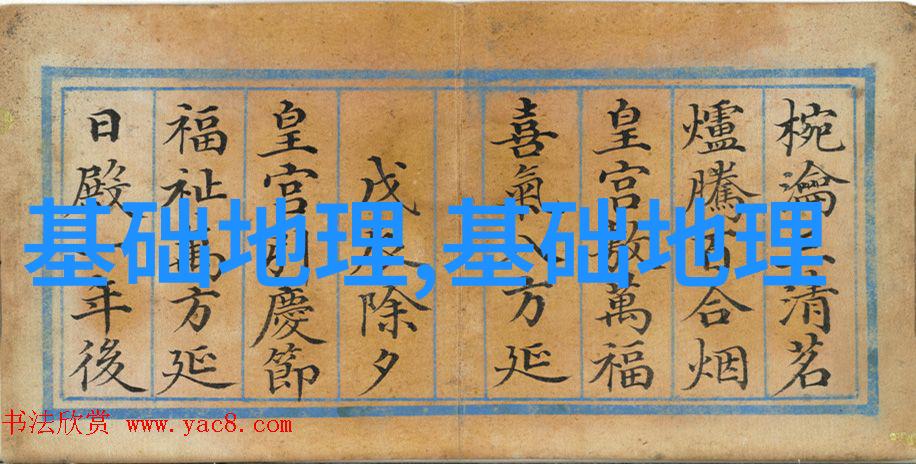 椀瀹清茗
爐騰百合烟
皇宮敷萬福
喜氣八方延
戊辰除夕
皇宮引慶節
福祉萬方延
日殿一年後
基础地理,基础地理
书法欣赏 www.yac8.com